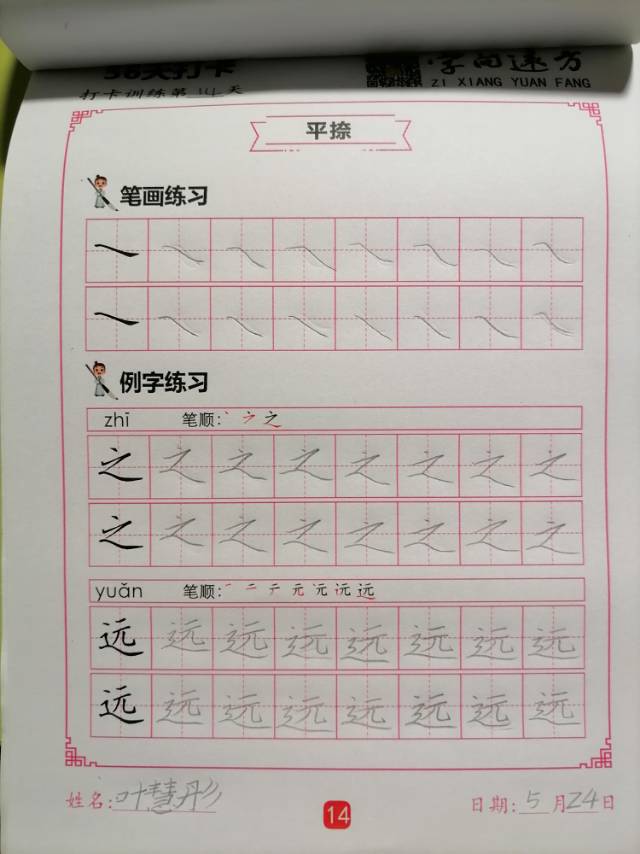 38天打卡
字向远方
ZI XIANG YUAN FANG
打卡训练第 14 天
平捺
笔画练习
例字练习
zhī 笔顺: 丶 ㇇ 之
之 之 之 之 之 之 之 之
之 之 之 之 之 之 之 之
yuǎn 笔顺: 一 二 テ 元 沅 远 远
远 远 远 远 远 远 远 远
远 远 远 远 远 远 远 远
姓名: 叶慧彤 14 日期: 5 月 24 日